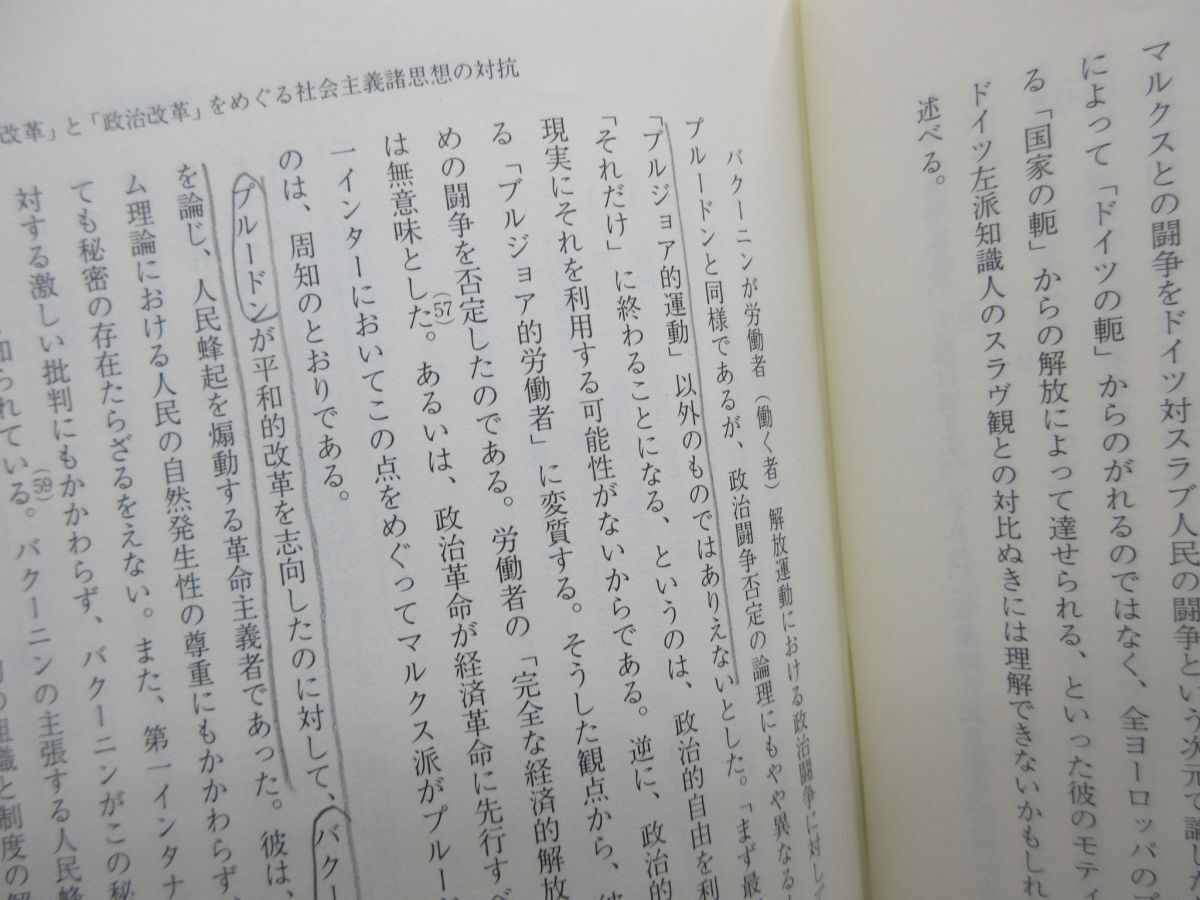 マルクスとの闘争をドイツ対スラブ人民の闘争という次元で論じた
によって「ドイツの軛」からのがれるのではなく、全ヨーロッパの
る「国家の軛」からの解放によって達せられる、といった彼のモティ
ドイツ左派知識人のスラヴ観との対比ぬきには理解できないかもしれ
述べる。
改革」と「政治改革」をめぐる社会主義諸思想の対抗
バクーニンが労働者（働く者）解放運動における政治闘争に対して
プルードンと同様であるが、政治闘争否定の論理にもやや異なる
「ブルジョア的運動」以外のものではありえないとした。「まず最
「それだけ」に終わることになる、というのは、政治的自由を利
現実にそれを利用する可能性がないからである。逆に、政治的
る「ブルジョア的労働者」に変質する。そうした観点から、彼
めの闘争を否定したのである。労働者の「完全な経済的解放
は無意味とした。(57)あるいは、政治革命が経済革命に先行すべ
一インターにおいてこの点をめぐってマルクス派がプルー
のは、周知のとおりである。
プルードンが平和的改革を志向したのに対して、バクー
を論じ、人民蜂起を煽動する革命主義者であった。彼は、
ム理論における人民の自然発生性の尊重にもかかわらず、
ても秘密の存在たらざるをえない。また、第一インタナ
対する激しい批判にもかかわらず、バクーニンがこの秘
知られている。(59)バクーニンの主張する人民蜂
組織と制度の